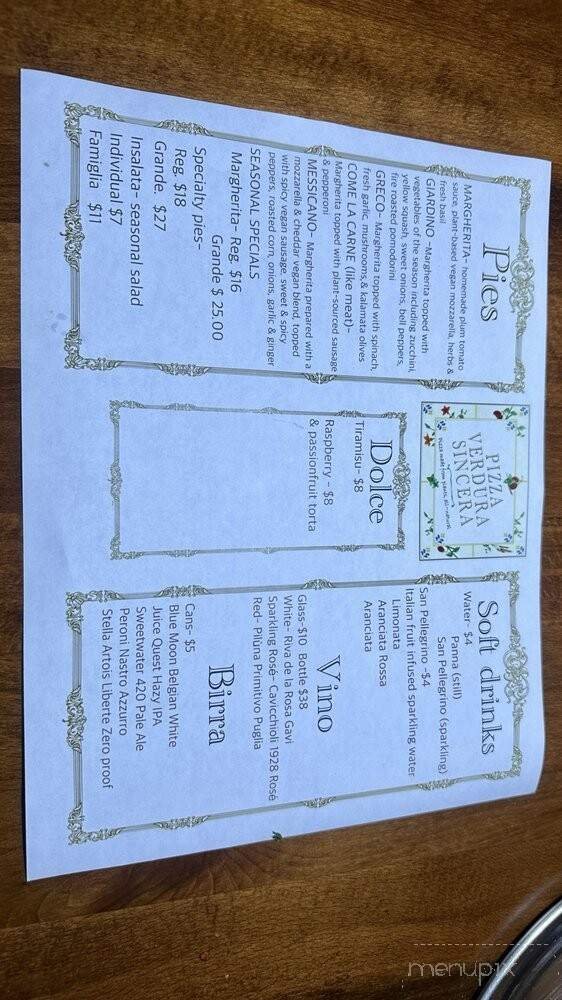 Pies
MARGHERITA- homemade plum tomato
sauce, plant-based vegan mozzarella, herbs &
fresh basil
GIARDINO ~Margherita topped with
vegetables of the season including zucchini,
yellow squash, sweet onions, bell peppers,
fire roasted pomodorini
GRECO- Margherita topped with spinach,
fresh garlic, mushrooms,& kalamata olives
COME LA CARNE (like meat)-
Margherita topped with plant-sourced sausage
& pepperoni
MESSICANO- Margherita prepared with a
mozzarella & cheddar vegan blend, topped
with spicy vegan sausage, sweet & spicy
peppers, roasted corn, onions, garlic & ginger
SEASONAL SPECIALS
Margherita- Reg. $16
Grande $ 25.00
Specialty pies-
Reg. $18
Grande. $27
Insalata- seasonal salad
Individual $7
Famiglia $11
PIZZA
VERDURA
SINCERA
Dolce
Tiramisu- $8
Raspberry - $8
& passionfruit torta
Soft drinks
Water- $4
Panna (still)
San Pellegrino (sparkling)
San Pellegrino -$4
Italian fruit infused sparkling water
Limonata
Aranciata Rossa
Aranciata
Vino
Glass-$10 Bottle $38
White- Riva de la Rosa Gavi
Sparkling Rosé- Cavicchioli 1928 Rosé
Red- Pilùna Primitivo Puglia
Birra
Cans- $5
Blue Moon Belgian White
Juice Quest Hazy IPA
Sweetwater 420 Pale Ale
Peroni Nastro Azzurro
Stella Artois Liberte Zero proof
menupix